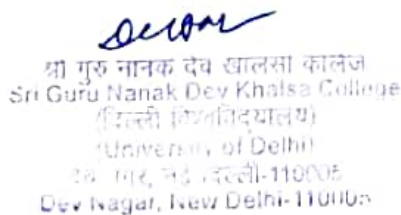 श्री गुरु नानक देव खालसा कालेज
Sri Guru Nanak Dev Khalsa College
(दिल्ली विश्वविद्यालय)
(University of Delhi)
देव नगर, नई दिल्ली-110005
Dev Nagar, New Delhi-110005